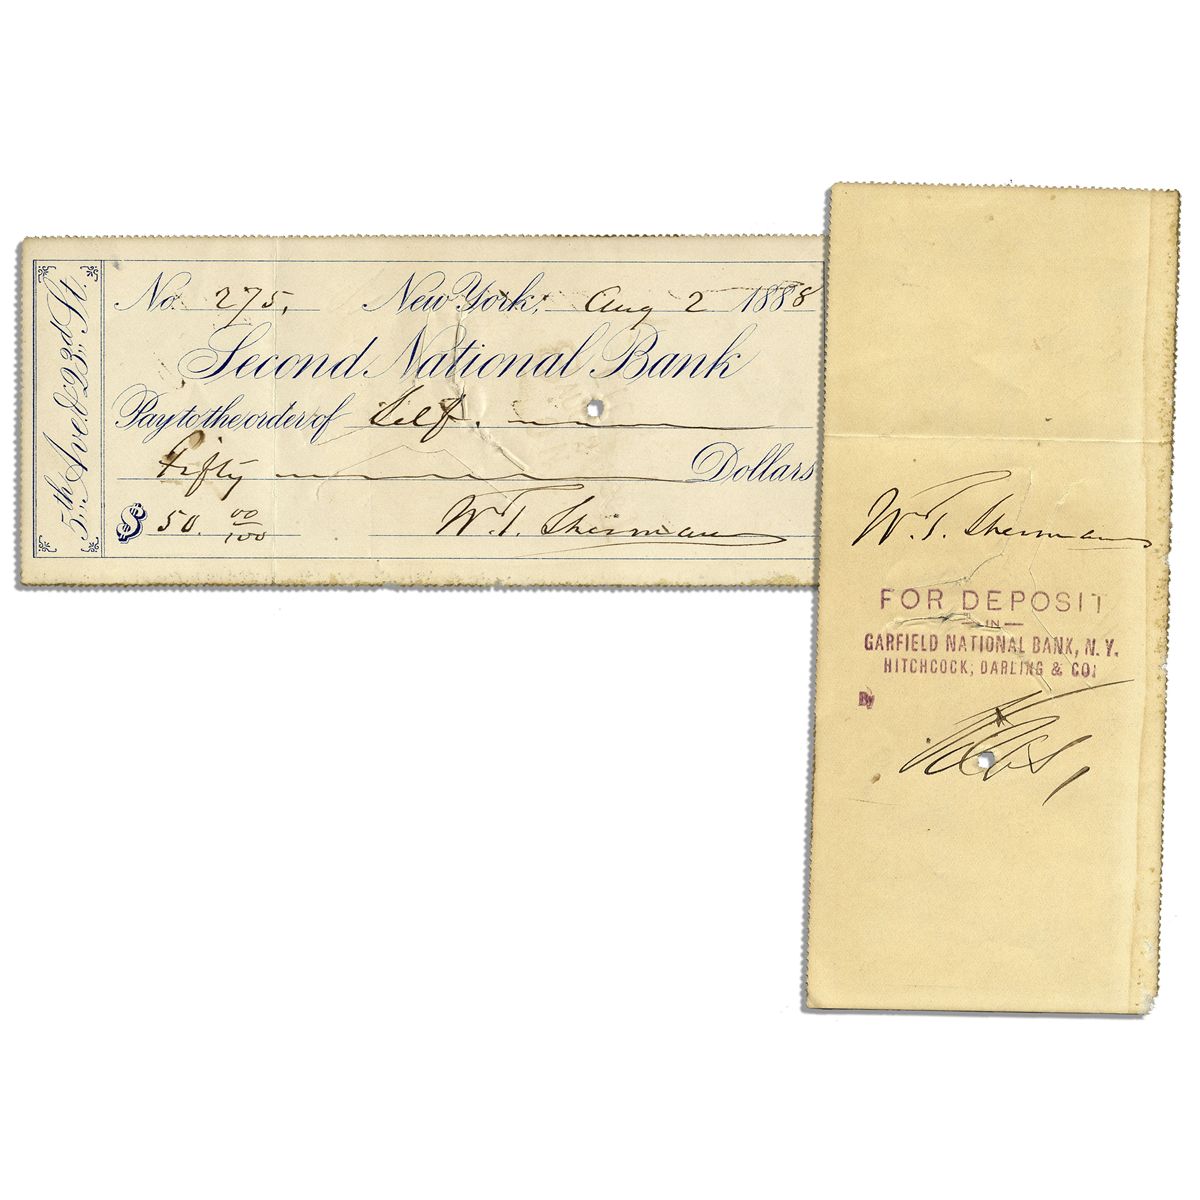 5th Ave. & 23rd St.
No. 275. New York, Aug 2 1888
Second National Bank
Pay to the order of Self.
Fifty Dollars
$ 50. 00/100 W. T. Sherman
W. T. Sherman
FOR DEPOSIT
— IN —
GARFIELD NATIONAL BANK, N. Y.
HITCHCOCK, DARLING & CO.
By